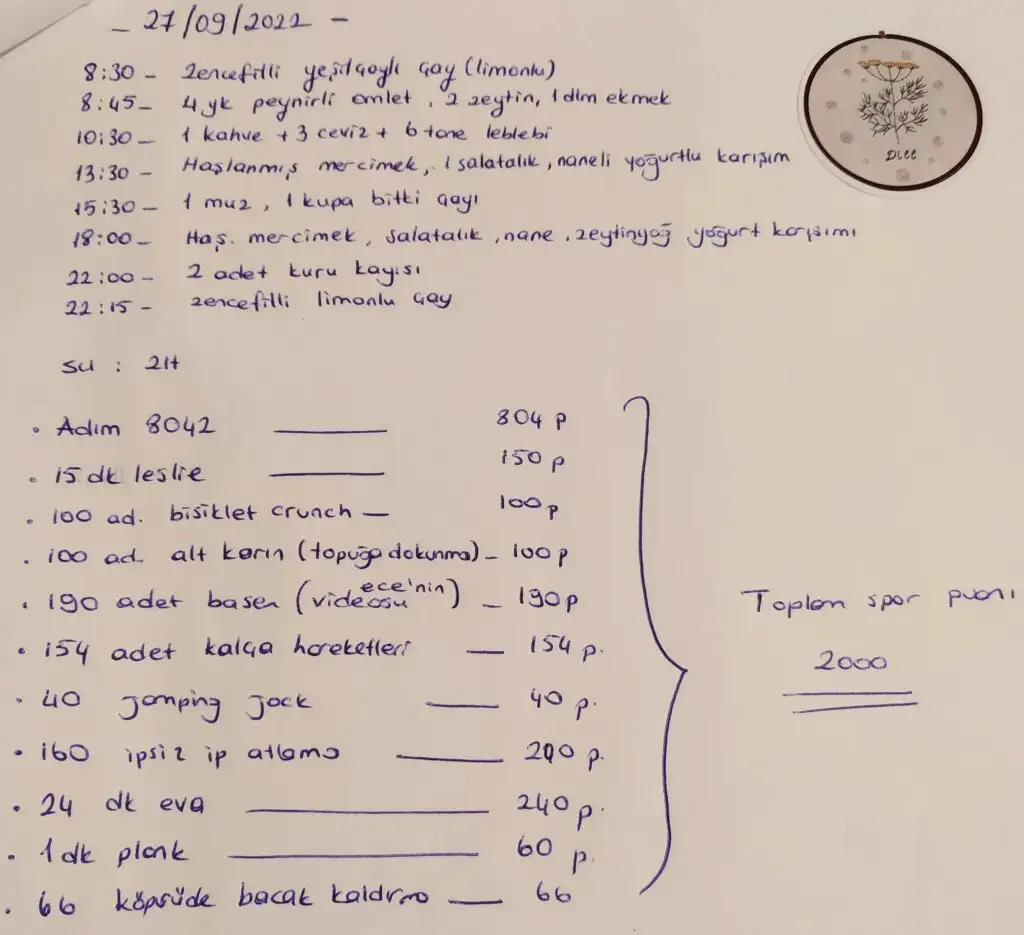 - 27/09/2022 -
8:30 - Zencefilli yeşilçaylı çay (limonlu)
8:45 - 4 yk peynirli omlet, 2 zeytin, 1 dlm ekmek
10:30 - 1 kahve + 3 ceviz + 6 tane leblebi
13:30 - Haşlanmış mercimek, 1 salatalık, naneli yoğurtlu karışım
15:30 - 1 muz, 1 kupa bitki çayı
18:00 - Haş. mercimek, salatalık, nane, zeytinyağ yoğurt karışımı
22:00 - 2 adet kuru kayısı
22:15 - zencefilli limonlu çay
Dill
su : 2lt
• Adım 8042 — 804 p
• 15 dk leslie — 150 p
• 100 ad. bisiklet crunch — 100 p
• 100 ad. alt karın (topuğa dokunma) - 100 p
• 190 adet basen (ece'nin videosu) - 190 p
• 154 adet kalça hareketleri — 154 p.
• 40 jamping jack — 40 p.
• 160 ipsiz ip atlama — p.
• 24 dk eva — 240 p.
• 1 dk plank — 60 p.
• 66 köprüde bacak kaldırma — 66
Toplam spor puanı
2000